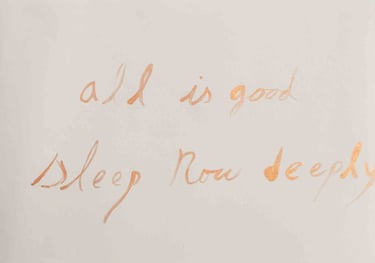 all is good
sleep now deeply